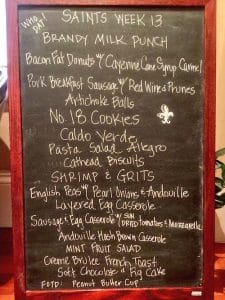 WHO DAT!
SAINTS WEEK 13
BRANDY MILK PUNCH
Bacon Fat Donuts w/ Cayenne Cane Syrup Caramel
Pork Breakfast Sausage w/ Red Wine & Prunes
Artichoke Balls
No. 18 Cookies
Caldo Verde
Pasta Salad Allegro
Cathead Biscuits
SHRIMP & GRITS
English Peas w/ Pearl Onions & Andouille
Layered Egg Casserole
Sausage & Egg Casserole w/ SUN DRIED Tomatoes & Mozzarella
Andouille Hash Brown Casserole
MINT FRUIT SALAD
Creme Brulee French Toast
Soft Chocolate & Fig Cake
FOTD: Peanut Butter Cup